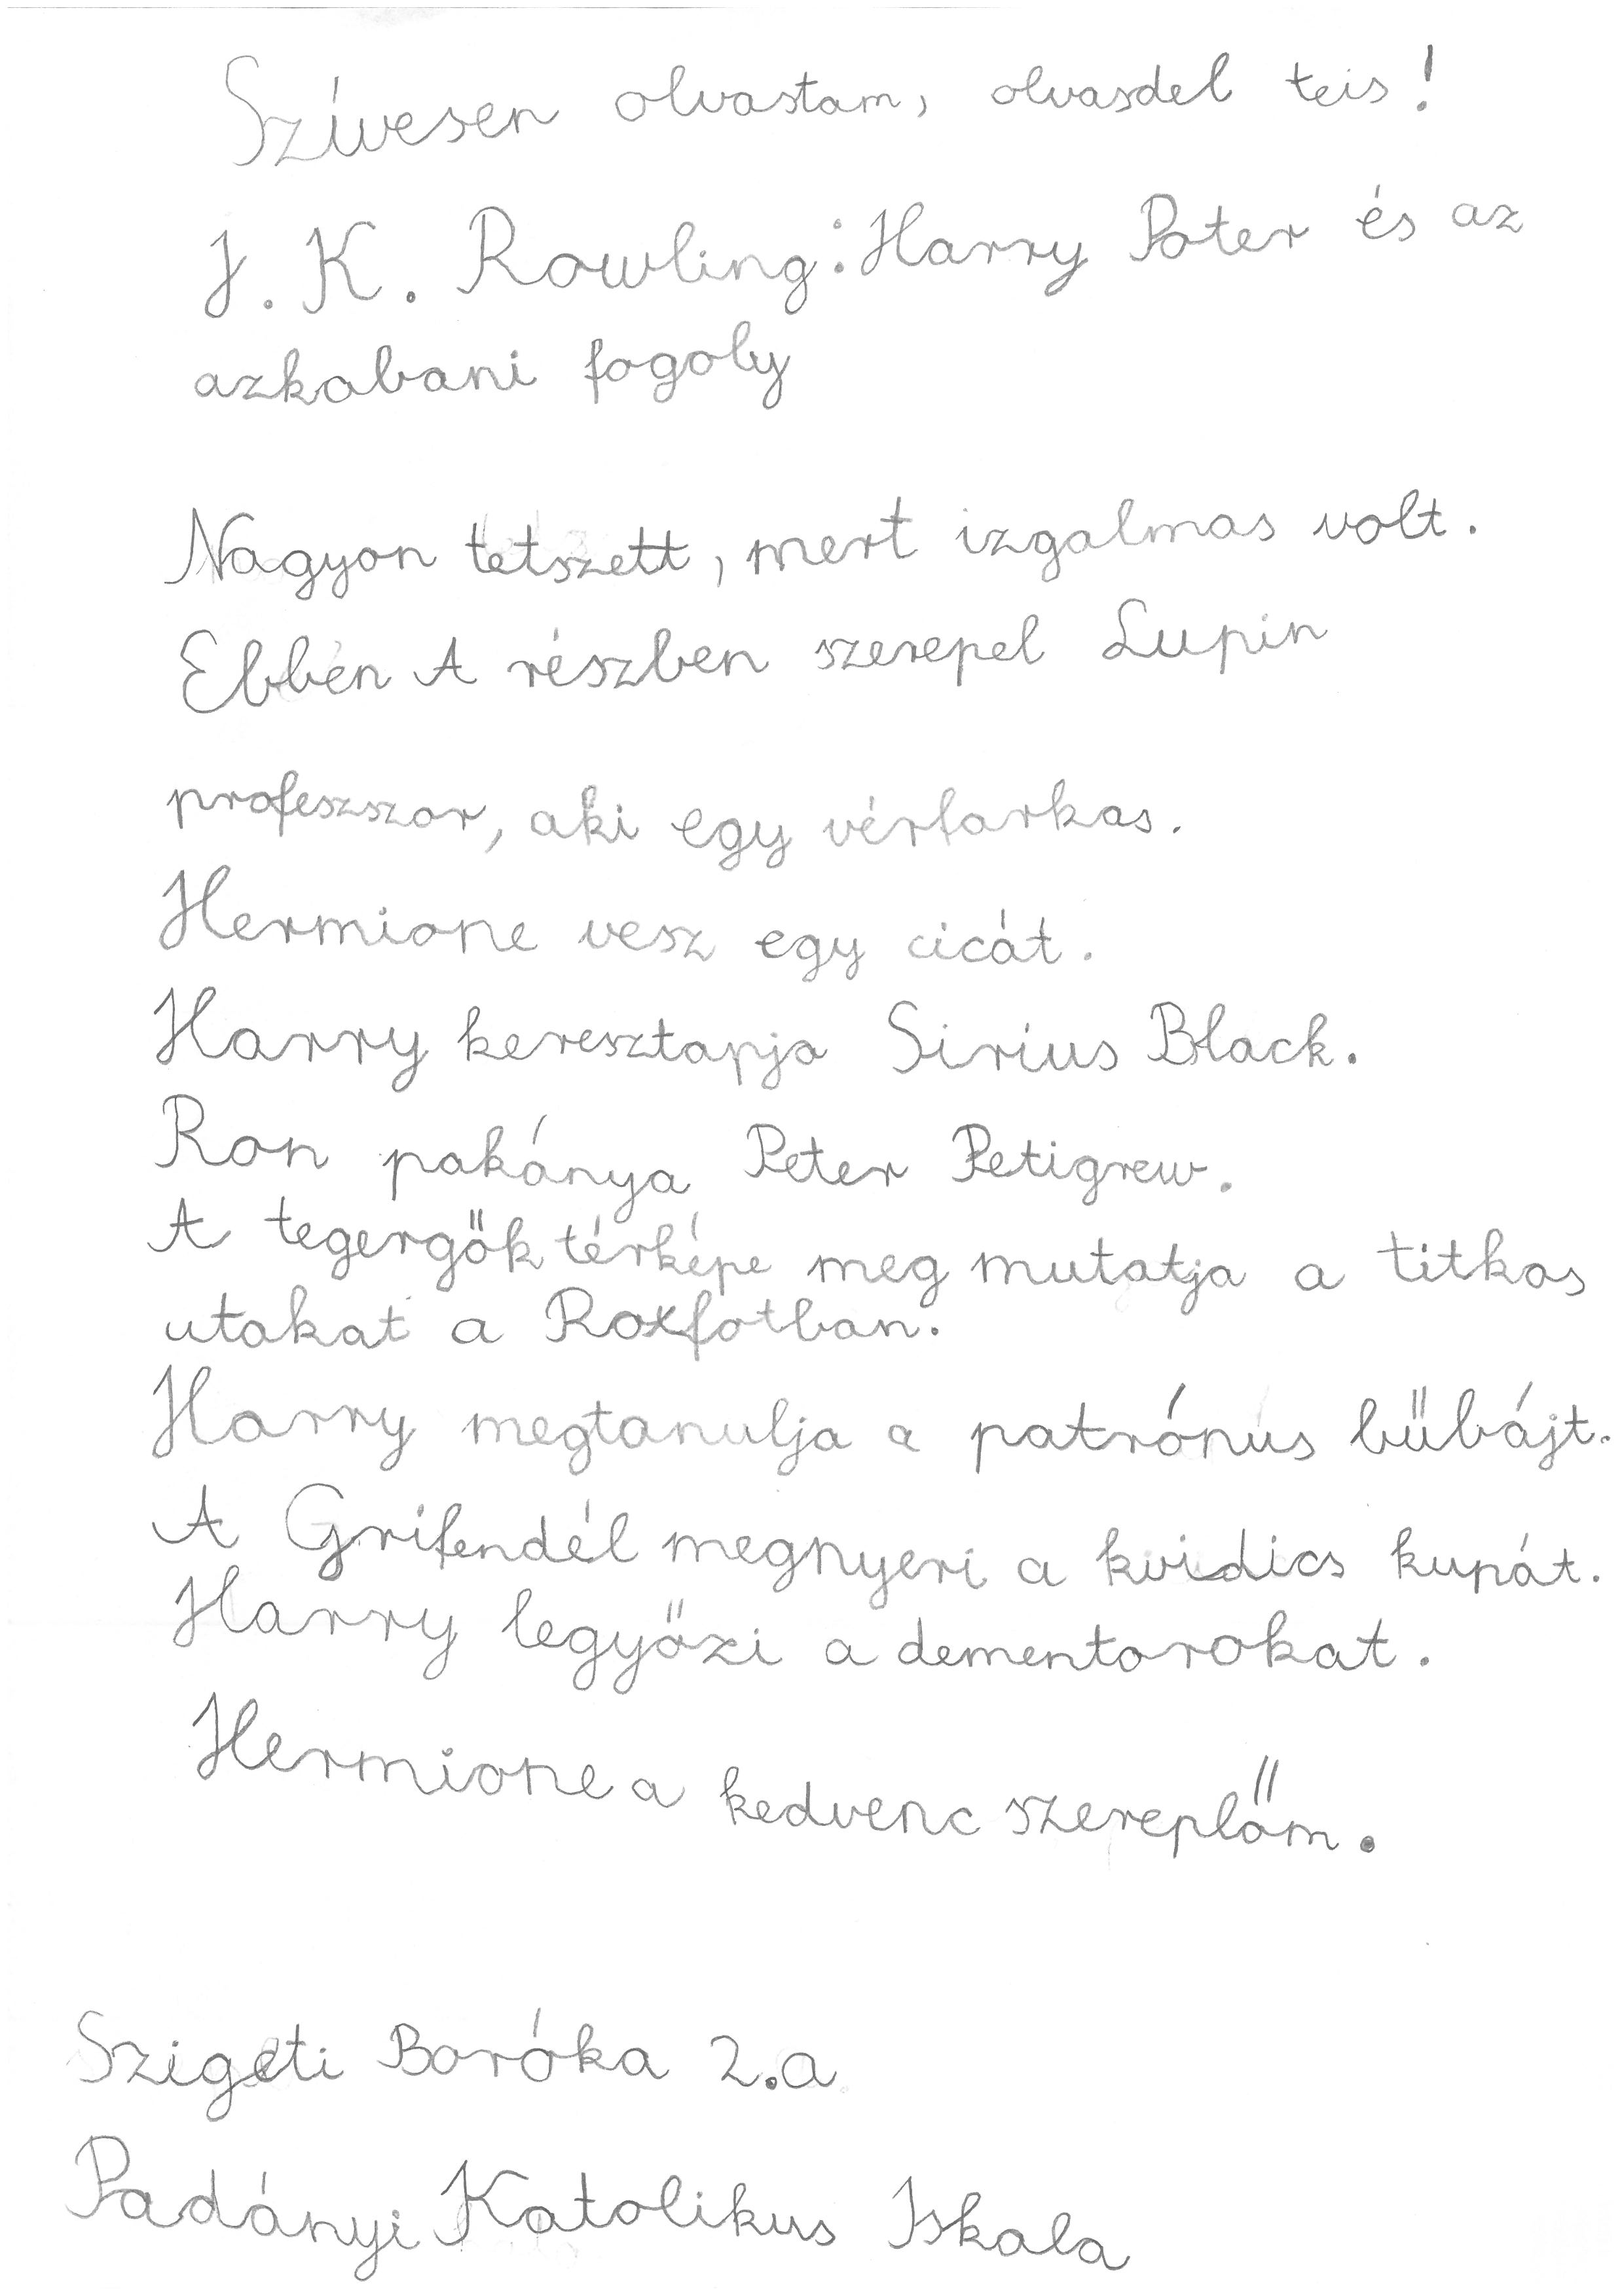 Szívesen olvastam, olvasdel teis!
J. K. Rowling: Harry Poter és az
azkabani fogoly
Nagyon tetszett, mert izgalmas volt.
Ebben A részben szerepel Lupin
profeszszor, aki egy vérfarkas.
Hermione vesz egy cicát.
Harry keresztapja Sirius Black.
Ron pakánya Peter Petigrew.
A tegergők térképe meg mutatja a titkos
utakat a Roxfotban.
Harry megtanulja a patrónus bűbájt.
A Grifendél megnyeri a kvidics kupát.
Harry legyőzi a dementorokat.
Hermione a kedvenc szereplőm.
Szigeti Boróka 2.a
Padányi Katolikus Iskala